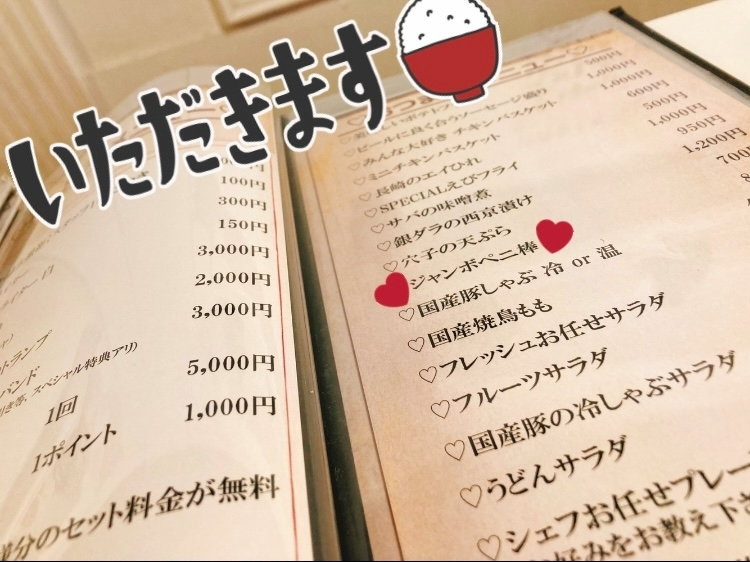 いただきます
100円
300円
150円
3,000円
2,000円
3,000円
トランプ
バンド
スペシャル特典アリ)
5,000円
1回
1,000円
1ポイント
分のセット料金が無料
500円
♡ビールに良く合うソーセージ盛り 1,000円
♡みんな大好き チキンバスケット 1,000円
♡ミニチキンバスケット 600円
♡長崎のエイひれ 500円
♡SPECIALえびフライ 1,000円
♡サバの味噌煮 950円
♡銀ダラの西京漬け 1,200円
♡穴子の天ぷら 700
ジャンボペニ棒
♡国産豚しゃぶ 冷 or 温
♡国産焼鳥もも
♡フレッシュお任せサラダ
♡フルーツサラダ
♡国産豚の冷しゃぶサラダ
♡うどんサラダ
♡シェフお任せプレー
好みをお教え下さ